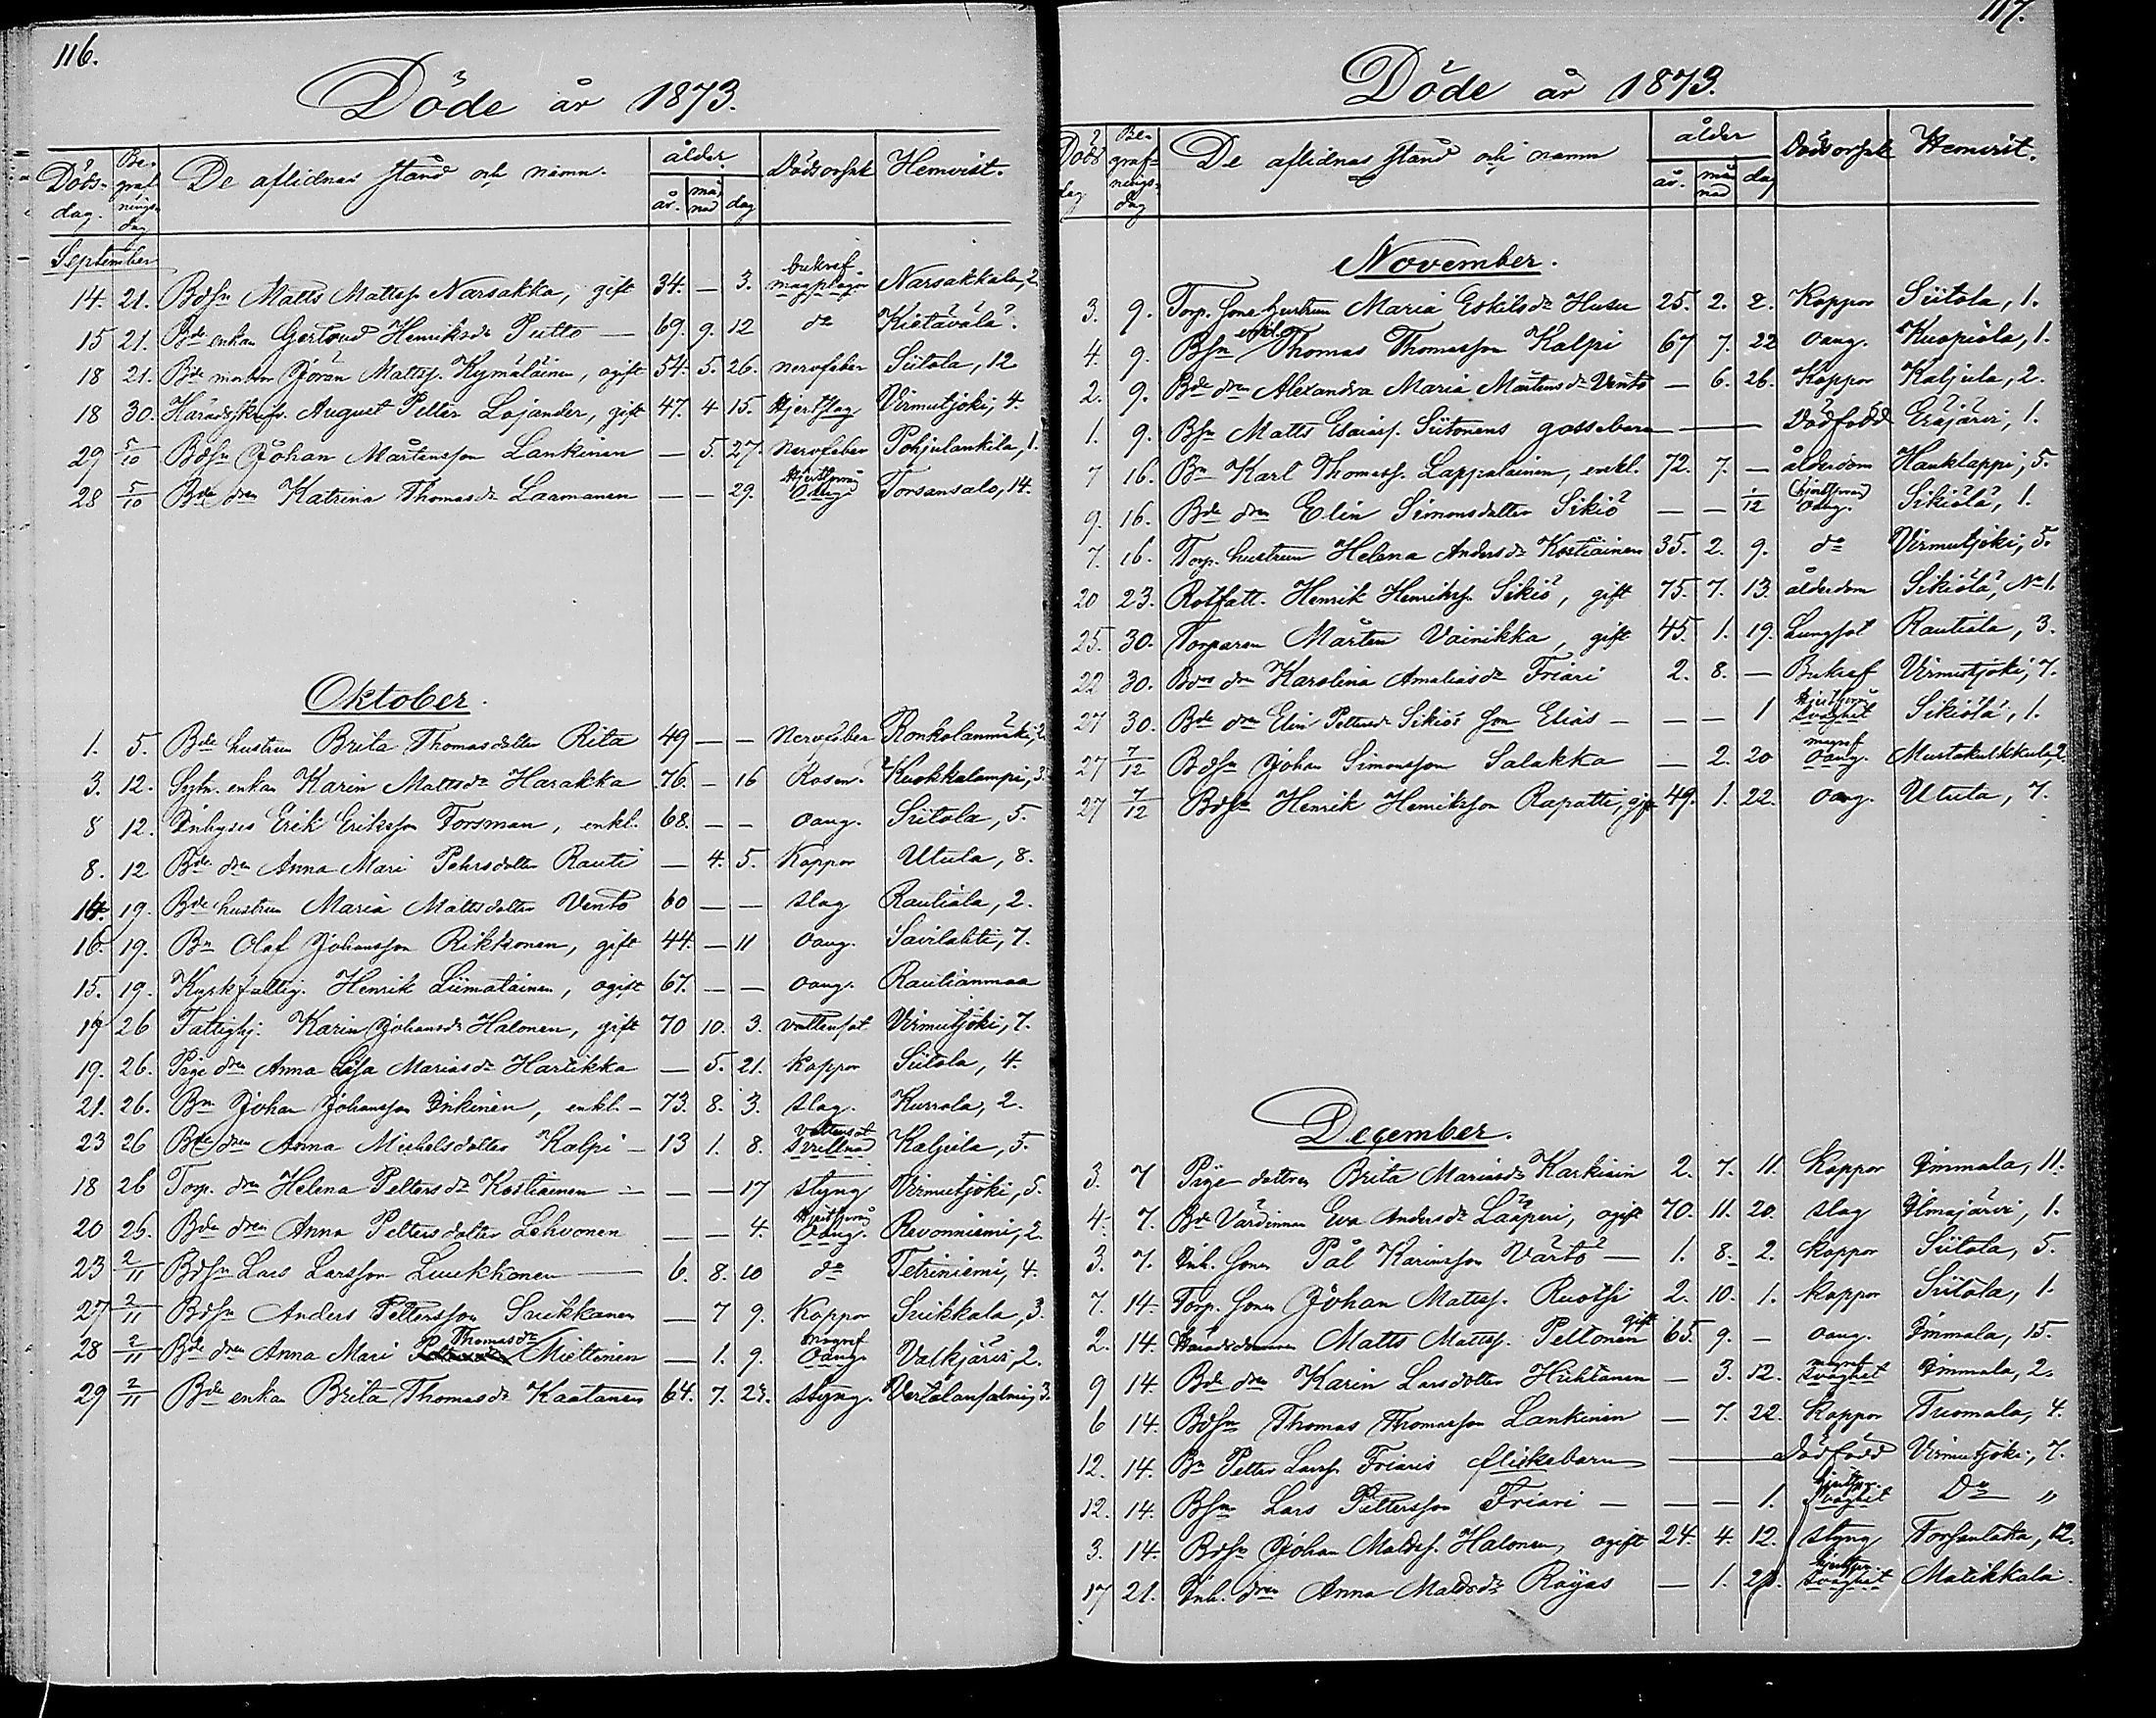 116.
Döde år 1873.
Döds-dag. Begrafningsdag De aflidnas stånd och namn. ålder år. månad dag Dödsorsak Hemvist.
September
14. 21. Bdsn Matts Mattss. Narsakka, gift 34. — 3. bukref magplågor Narsakkala, 2
15 21. Bde enkan Gertrud Henriksdr Putto — 69. 9. 12 do Kietävälä.
18 21. Bde morbror Jöran Mattss. Kymäläinen, ogift 54. 5. 26. nervfeber Siitola, 12
18 30. Häradsskrifv. August Petter Lojander, gift 47. 4 15. Hjertslag Virmutjoki, 4.
29 5/10 Bdsn Johan Mårtensson Lankinen — 5. 27. Nervfeber Pohjalankila, 1.
28 5/10 Bde dren Katrina Thomasdr Laamanen — — 29. Oang. Torsansalo, 14.
Oktober.
1. 5. Bde hustrun Brita Thomasdotter Rita 49 — — Nervfeber Ronkolanmäki, 2
3. 12. Sytn. enkan Karin Mattsdr Harakka 76. — 16 Rosen. Kuokkalampi, 3.
8 12. Inhyses Erik Eriksson Forsman, enkl. 68. — — Oang. Siitola, 5.
8. 12 Bde dren Anna Mari Pehrsdotter Rauti — 4. 5. Koppor Utula, 8.
14. 19. Bde hustrun Maria Mattsdotter Vento 60 — — slag Rautiala, 2.
16. 19. Bn Olof Johansson Rikkonen, gift 44. — 11 Oang. Savilahti, 7.
15. 19. Kyrkfattig. Henrik Liimatainen, ogift 67. — — Oang. Rautianmaa
17 26 Fattighj. Karin Johansdr Halonen, gift 70 10. 3. vattusot Virmutjoki, 7.
19. 26. Pige dren Anna Lisa Mariasdr Hartikka — 5. 21. koppor Siitola, 4.
21. 26. Bn Johan Johansson Inkinen, enkl. — 73. 8. 3. slag. Kurvola, 2.
23 26 Bde dren Anna Michelsdotter Kalpi — 13 1. 8. vattusot svullnad Kaljula, 5.
18 26 Torp. dren Helena Pettersdr Kostiainen — — — 17 styng Virmutjoki, 5.
20 26. Bde dren Anna Pettersdotter Lehvonen — — 4. Oang. Revonniemi, 2.
23 2/11 Bdsn Lars Larsson Luukkonen — 6. 8. 10 do Tetriniemi, 4.
27 2/11 Bdsn Anders Pettersson Suikkanen — 7 9. Koppor Suikkala, 3.
28 2/11 Bde dren Anna Mari Thomasdr Miettinen — 1. 9. magref Oang. Valkjärvi, 2.
29 2/11 Bde enkan Brita Thomasdr Kaatanen 64. 7. 27. styng.
117.
Döde år 1873.
Döds dag Begrafningsdag De aflidnas stånd och namn ålder år. månad dag Dödsorsak Hemvist.
November.
3. 9. Torp. sons hustrun Maria Eskilsdr Husu 25. 2. 2. Koppor Siitola, 1.
4. 9. Bsn enkl. Thomas Thomasson Kalpi 67 7. 22 Oang. Kuopiala, 1.
2. 9. Bde dren Alexandra Maria Mårtensdr Vento — 6. 26. Koppor Kaljula, 2.
1. 9. Bsn Matts Esaiass. Siitonens gossebarn — — Dödfödd Eräjärvi, 1.
7 16. Bn Karl Thomass. Lappalainen, enkl. 72. 7. — ålderdom Hauklappi, 5.
9. 16. Bde dren Elin Simonsdotter Sikiö — — 1/12 Oang. Sikiölä, 1.
7. 16. Torp. hustrun Helena Andersdr Kostiainen 35. 2. 9. do Virmutjoki, 5.
20 23. Rotfatt. Henrik Henrikss. Sikiö, gift 75. 7. 13. ålderdom Sikiölä, No 1.
25. 30. Torparen Mårten Vainikka, gift 45. 1. 19. Lungsot Rautiala, 3.
22 30. Bdrs dren Karolina Amaliasdr Friari 2. 8. — Bukref Virmutjoki, 7.
27 30. Bde dren Elin Pettersdr Sikiös son Elias — — — 1 svaghet Sikiölä, 1.
27 7/12 Bdsn Johan Simonsson Salakka — 2. 20 magref Oang. Mustakulkkula, 2.
27 7/12 Bdsn Henrik Henriksson Rapatti, gift 49. 1. 22. Oang. Utula, 7.
December.
3. 7 Pige dottren Brita Mariasdr Karkiain 2. 7. 11. Koppor Immala, 11.
4. 7. Bde Värdinnan Eva Andersdr Lääperi, ogift 70. 11. 20. slag Ilmajärvi, 1.
3. 7. Inh. sonen Pål Karinsson Värtö — 1. 8. 2. koppor Siitola, 5.
7. 14. Torp. sonen Johan Mattss. Ruotsi 2. 10. 1. koppor Siitola, 1.
2. 14. Häradsdomaren Matts Mattss. Peltonen gift 65. 9. — Oang. Immala, 15.
9 14. Bde dren Karin Larsdotter Huhtanen — 3. 12. magref svaghet Immala, 2.
6 14. Bdsn Thomas Thomasson Lankinen — 7. 22. Koppor Tuomala, 4.
12. 14. Bn Petter Larss. Friaris flickebarn — Dödfödd Virmutjoki, 7.
12. 14. Bsn Lars Pettersson Friari — — — 1. svaghet Do "
3. 14. Bdsn Johan Halonen, ogift 24. 4. 12. styng 12.
17 21. Inh. dren Anna — 1. svaghet Matikkala.